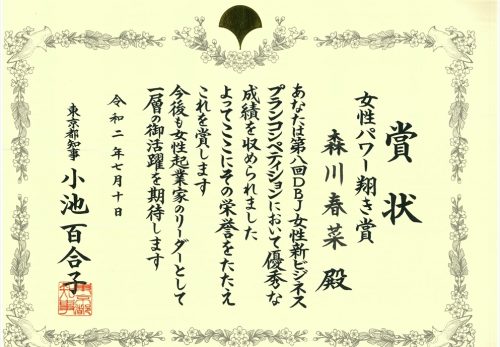 賞状
女性パワー翔き賞
森川春菜 殿
あなたは第八回DBJ女性新ビジネス
プランコンペティションにおいて優秀な
成績を収められました
よってここにその栄誉をたたえ
これを賞します
今後も女性起業家のリーダーとして
一層の御活躍を期待します
令和二年七月十日
東京都知事 小池百合子
東京都知事